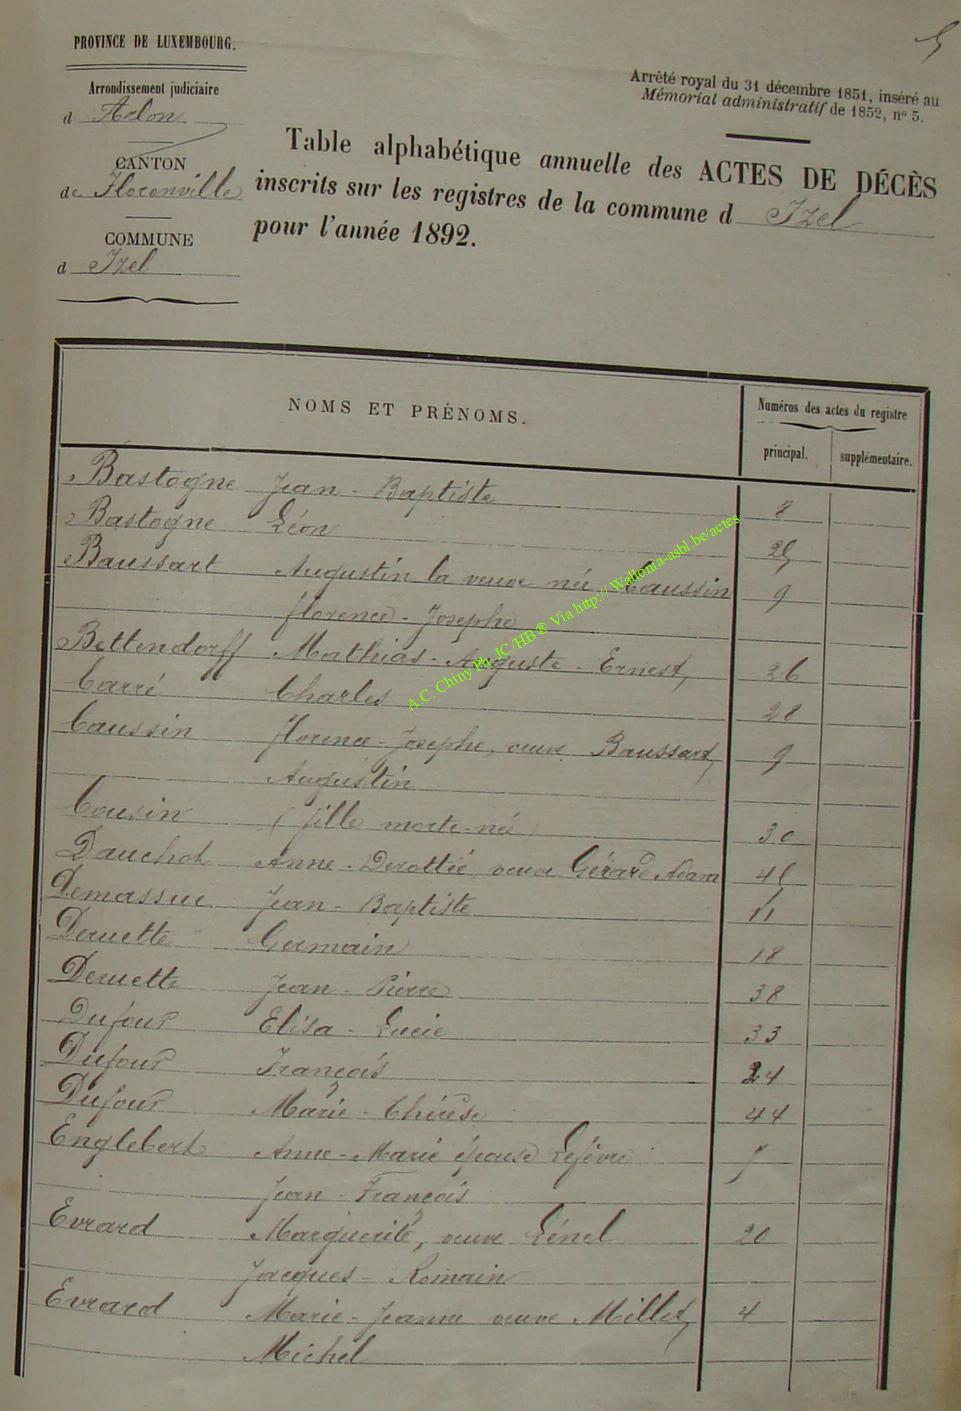 5
PROVINCE DE LUXEMBOURG.
Arrondissement judiciaire
d Arlon
CANTON
de Florenville
COMMUNE
d Izel
Arrêté royal du 31 décembre 1851, inséré au
Mémorial administratif de 1852, n° 5.
Table alphabétique annuelle des ACTES DE DÉCÈS
inscrits sur les registres de la commune d Izel
pour l'année 1892.
NOMS ET PRÉNOMS.
Numéros des actes du registre
principal. supplémentaire.
Bastogne Jean-Baptiste 8
Bastogne Léon 25
Baussart Augustin la veuve née Caussin 9
florence-Josephe
Bettendorff Mathias-Auguste-Ernest, 26
Carré Charles 28
Caussin florence-Josephe, veuve Baussart, 9
Augustin
Cousin (fille morte-née) 30
Dauchot Anne-Derottié, veuve Gérard Adam 45
Demassue Jean-Baptiste 11
Deruette Germain 18
Deruette Jean-Pierre 38
Dufour Elisa-Lucie 33
Dufour François 24
Dufour Marie-Thérèse 44
Englebert Anne-Marie épouse Lefèvre 5
Jean-François
Evrard Marguerite, veuve Lénel 20
Jacques-Romain
Evrard Marie-Jeanne veuve Millet, 4
Michel
A.C. Chiny Ph. JC/HB® Via http://Wallonia-asbl.be/actes